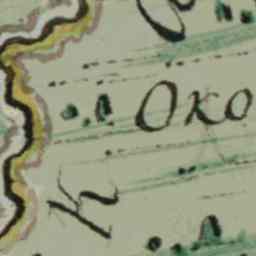 Око
К